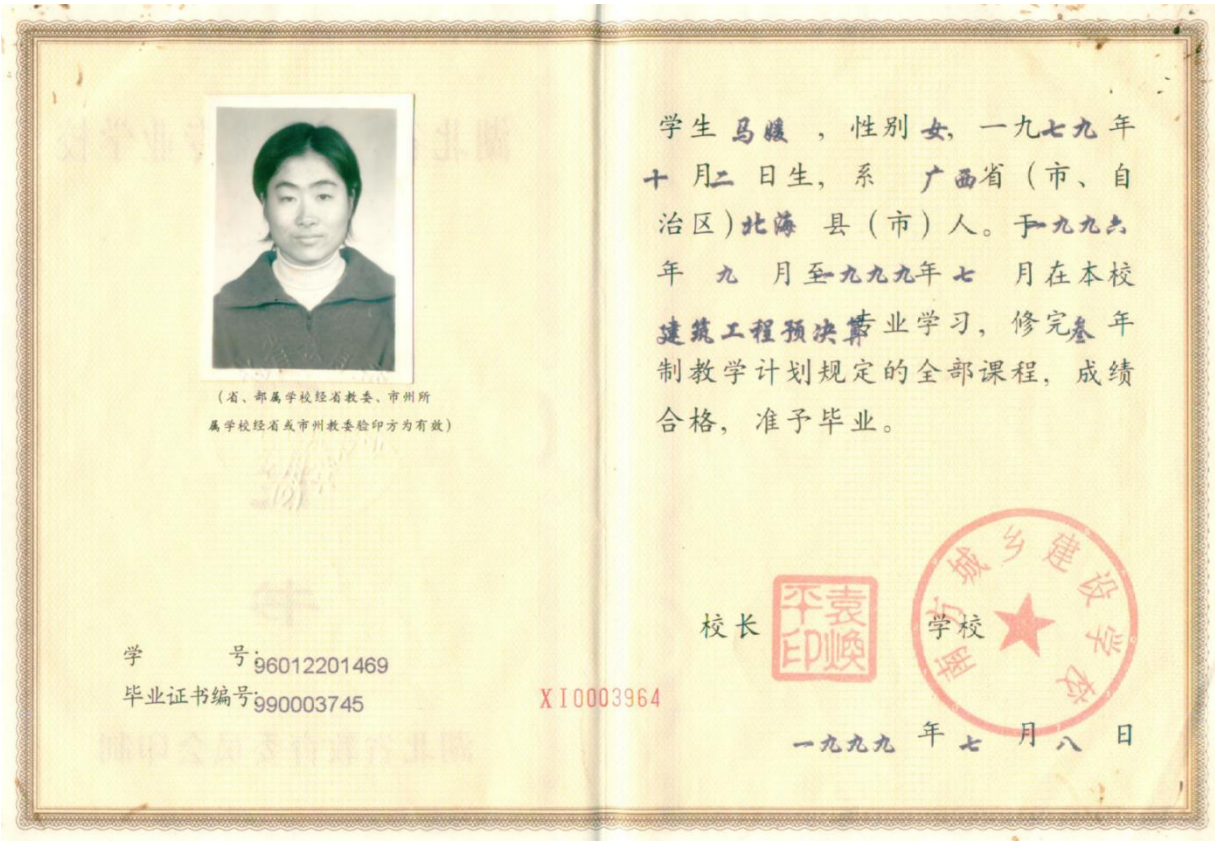 (省、部属学校经省教委、市州所
属学校经省或市州教委验印方为有效)
学 号:96012201469
毕业证书编号:990003745
XI0003964
学生 马媛 ,性别 女,一九七九 年
十 月二 日生,系 广西省(市、自
治区)北海 县(市)人。于一九九六
年 九 月至一九九九年七 月在本校
建筑工程预决算专业学习,修完叁 年
制教学计划规定的全部课程,成绩
合格,准予毕业。
校长
袁焕平印
学校
南方城乡建设学校
一九九九 年 七 月 八 日